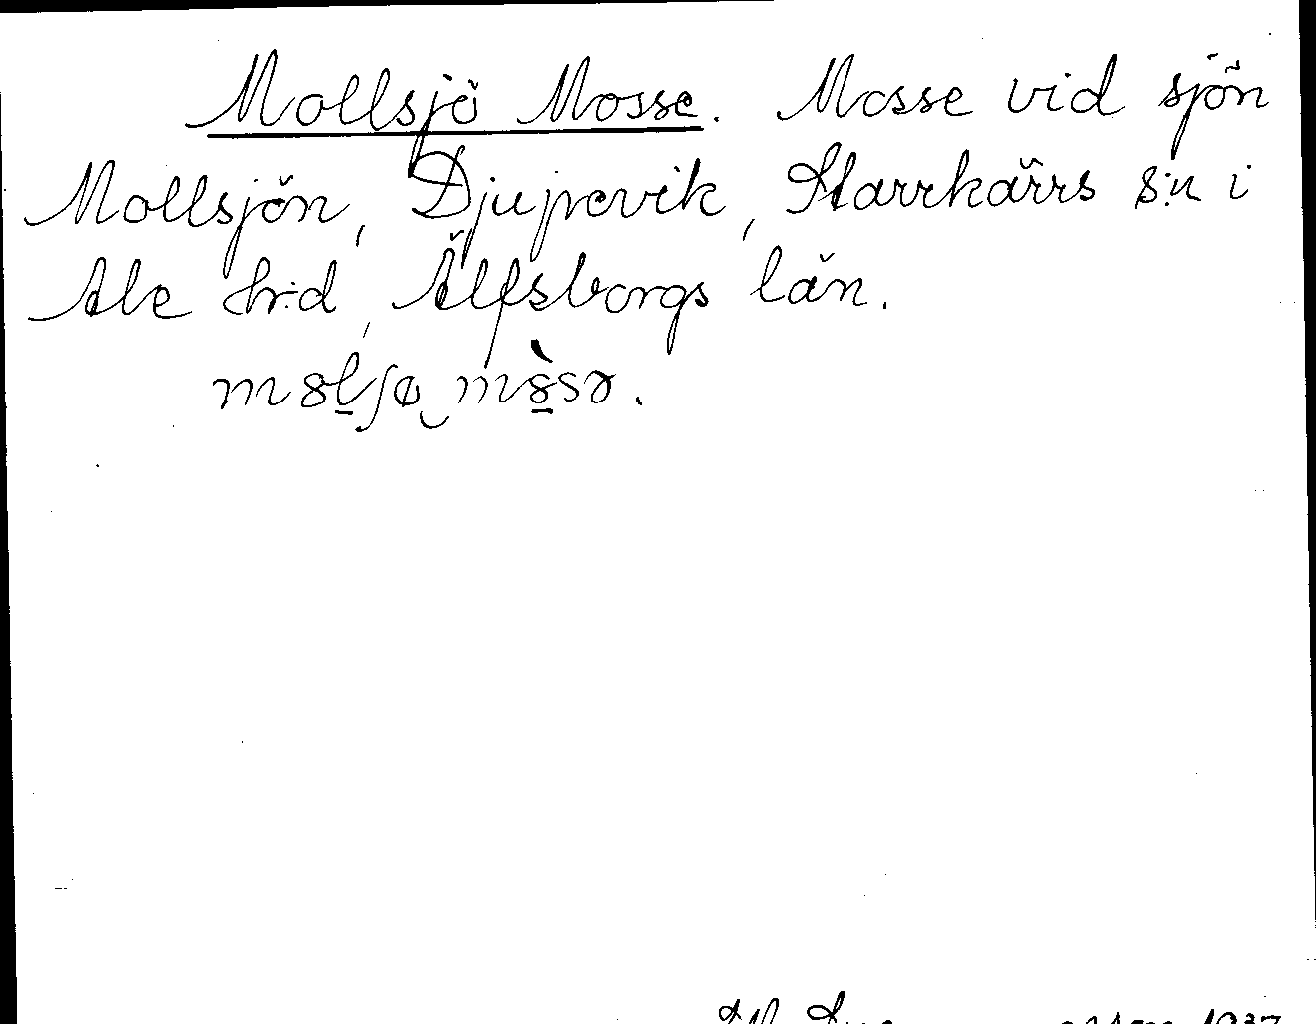 Mollsjö Mosse. Mosse vid sjön
Mollsjön, Djupevik, Starrkärrs s:n i
Ale hr:d, Älfsborgs län.
1937